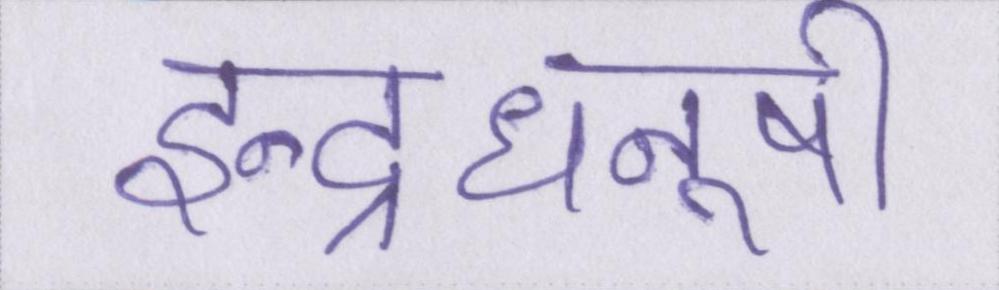 इन्द्रधनूषी